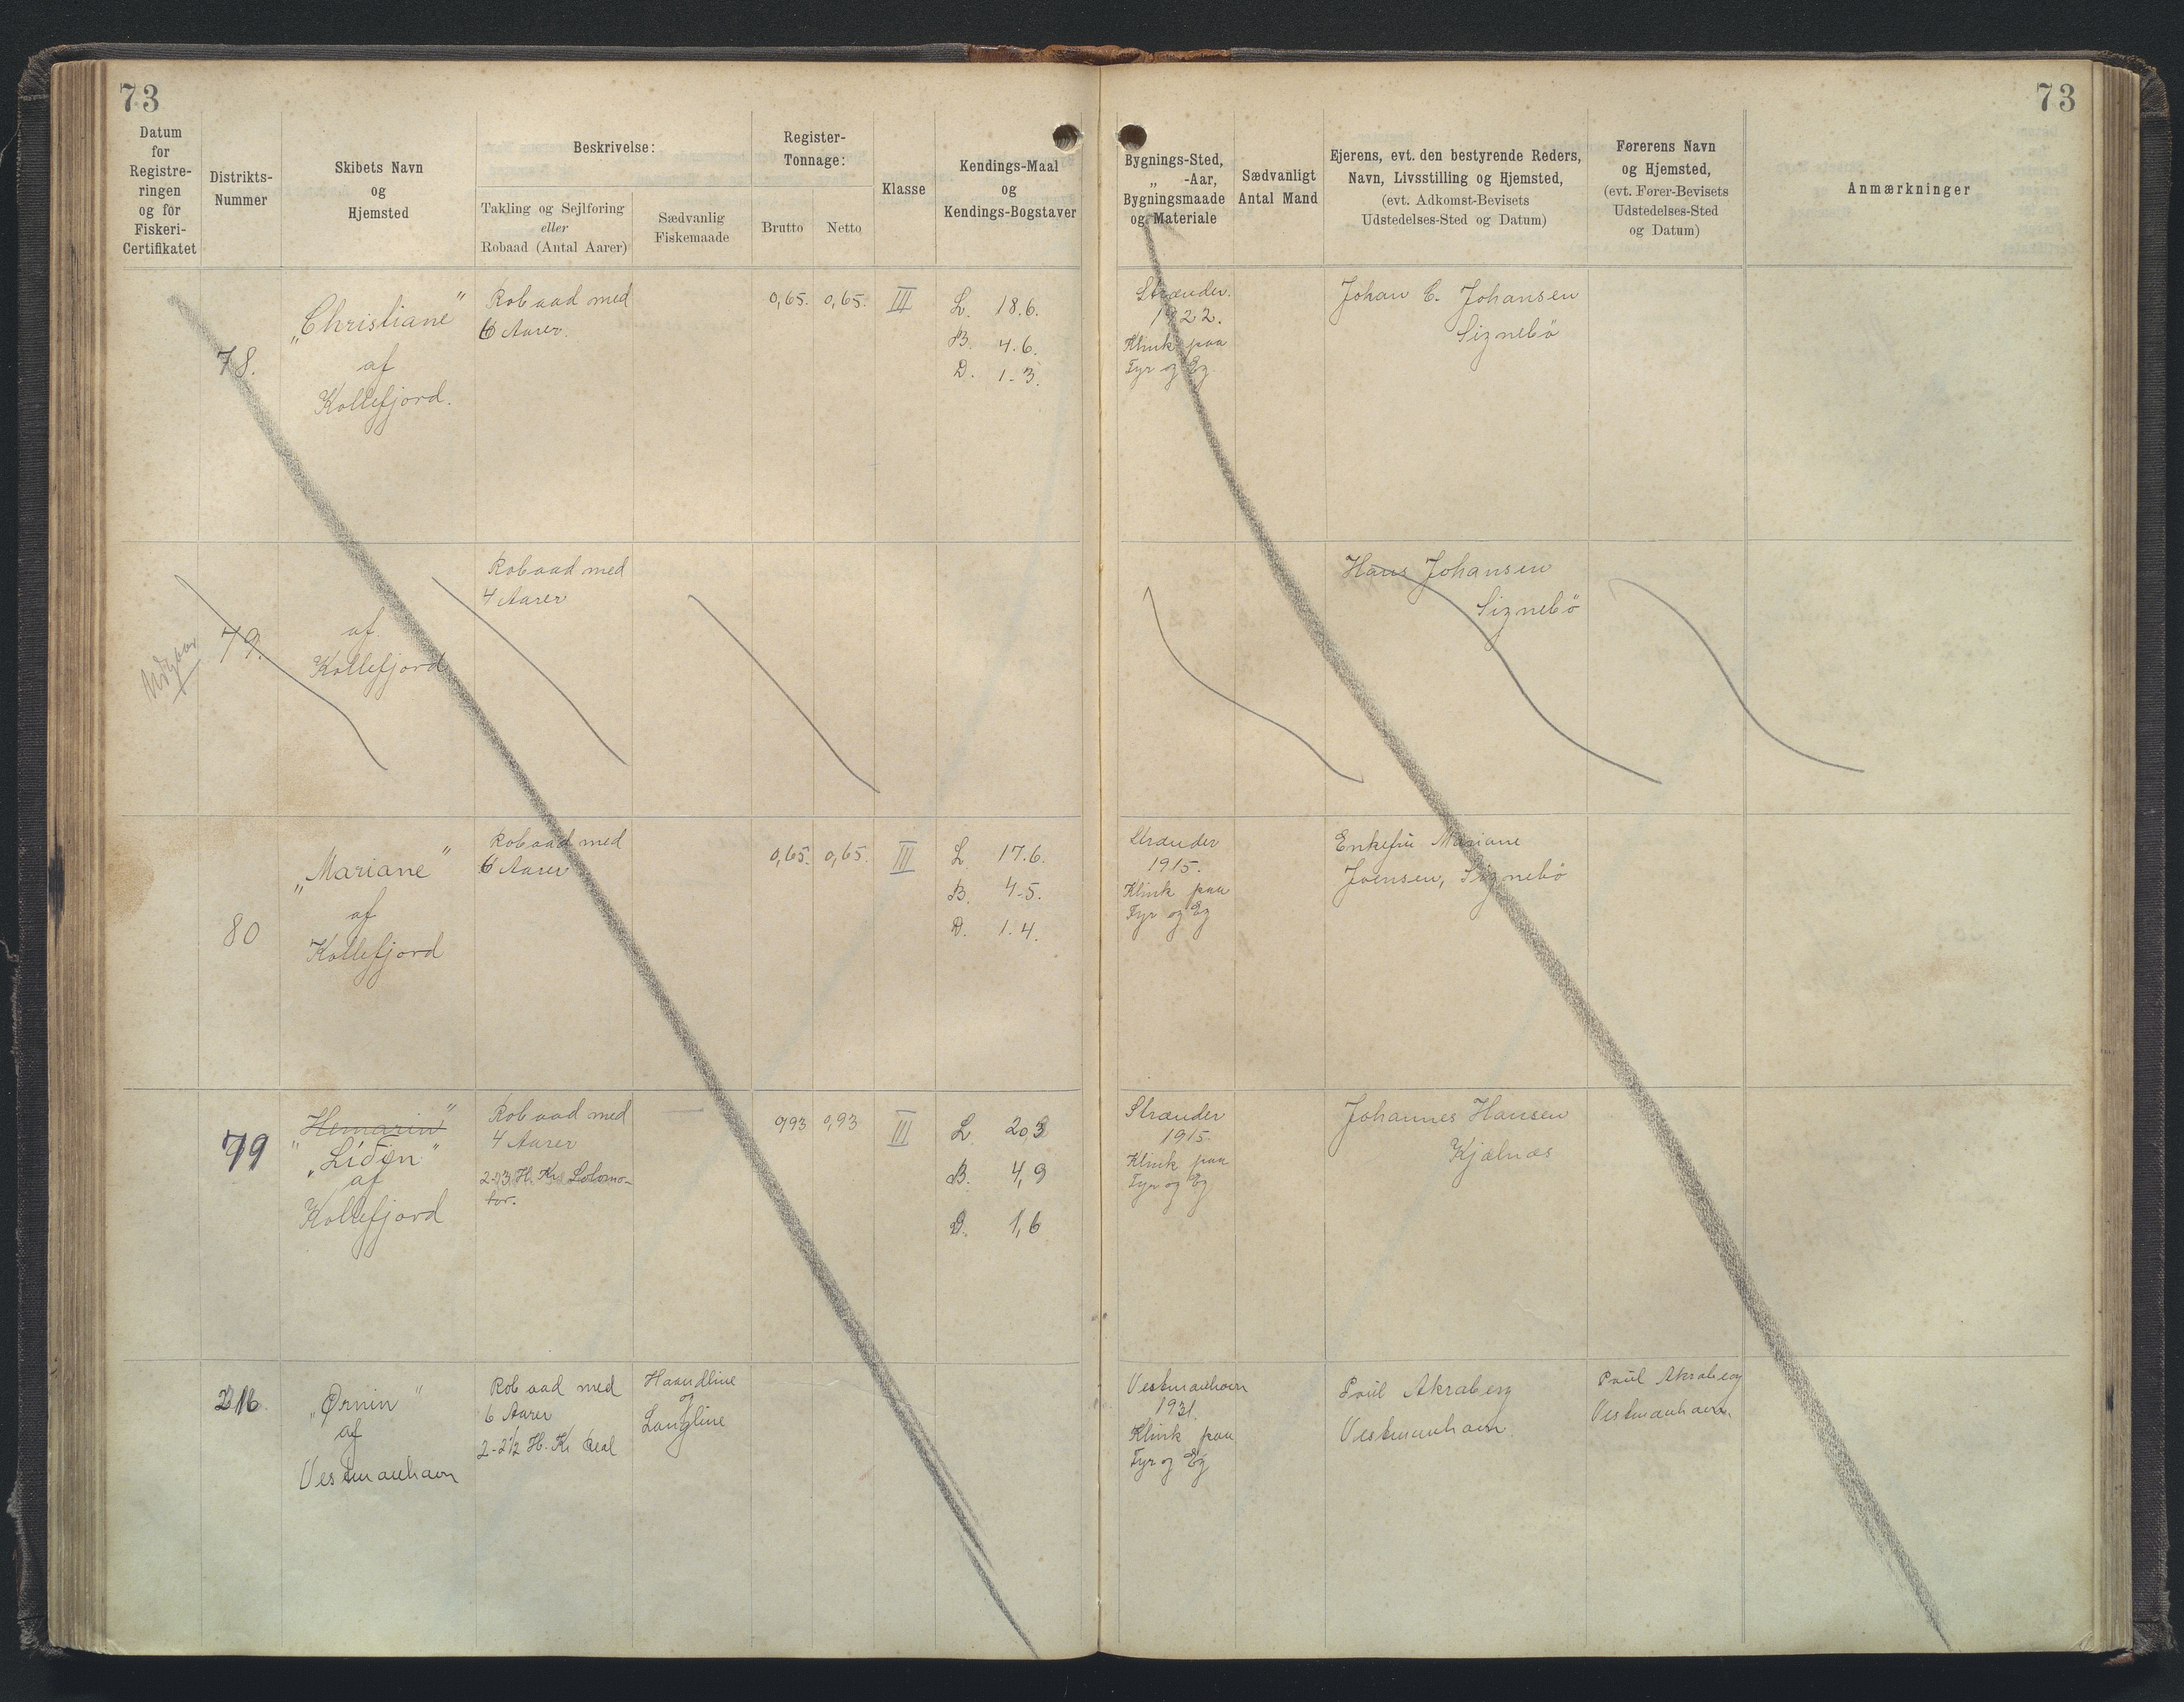 73
73
Datum
for
Registre-
ringen
og for
Fiskeri-
Certifikatet
Distrikts-
Nummer
Skibets Navn
og
Hjemsted
Beskrivelse:
Takling og Sejlføring
eller
Robaad (Antal Aarer)
Sædvanlig
Fiskemaade
Register-
Tonnage:
Brutto
Netto
Klasse
Kendings-Maal
og
Kendings-Bogstaver
Bygnings-Sted,
„ -Aar,
Bygningsmaade
og Materiale
Sædvanligt
Antal Mand
Ejerens, evt. den bestyrende Reders,
Navn, Livsstilling og Hjemsted,
(evt. Adkomst-Bevisets
Udstedelses-Sted og Datum)
Førerens Navn
og Hjemsted,
(evt. Fører-Bevisets
Udstedelses-Sted
og Datum)
Anmærkninger
78.
„Christiane"
af
Kollefjord.
Robaad med
6 Aarer.
0,65.
0,65.
III
L. 18.6.
B. 4.6.
D. 1.3.
Strænder.
1922.
Klink paa
Fyr og Eg
Johan C. Johansen
Signebö
Udgaar
79.
af
Kollefjord
Robaad med
4 Aarer
Hans Johansen
Signebö
80
„Mariane"
af
Kollefjord
Robaad med
6 Aarer
0,65.
0,65.
III
L 17.6.
B. 4.5.
D. 1.4.
Strænder
1915.
Klink paa
Fyr og Eg
Enkefru Mariane
Joensen, Signebö
79
„Hemarin"
„Lídin"
af
Kollefjord
Robaad med
4 Aarer
2-3 H. Kr. Solomo-
tor.
0,93
0,93
III
L. 20,3
B. 4,9
D. 1,6
Strænder
1915.
Klink paa
Fyr og Eg
Johannes Hansen
Kjælnæs
216
„Ørnin"
af
Vestmanhavn
Robaad med
6 Aarer
2-2½ H. Kr
Haandline
og
Langline
Vestmanhavn
1931.
Klink paa
Fyr og Eg
Poúl Akraberg
Vestmanhavn
Poúl Akraberg
Vestmanhavn.